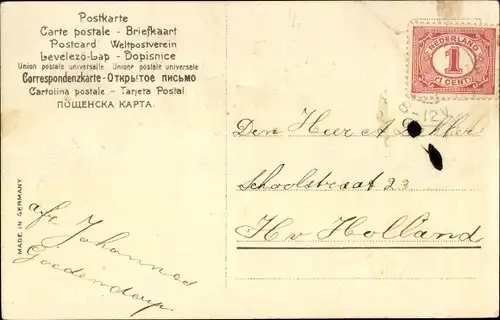 Postkarte
Carte postale - Briefkaart
Postcard Weltpostverein
Levelező-Lap - Dopisnice
Union postale universelle Unione postale universale
Correspondenzkarte - Открытое письмо
Cartolina postale - Tarjeta Postal
ПОЩЕНСКА КАРТА
NEDERLAND
1
1 CENT
8-12V
Den Heer A Dekker
Schoolstraat 23
H v Holland
afz. Johannes
Goedendorp
MADE IN GERMANY